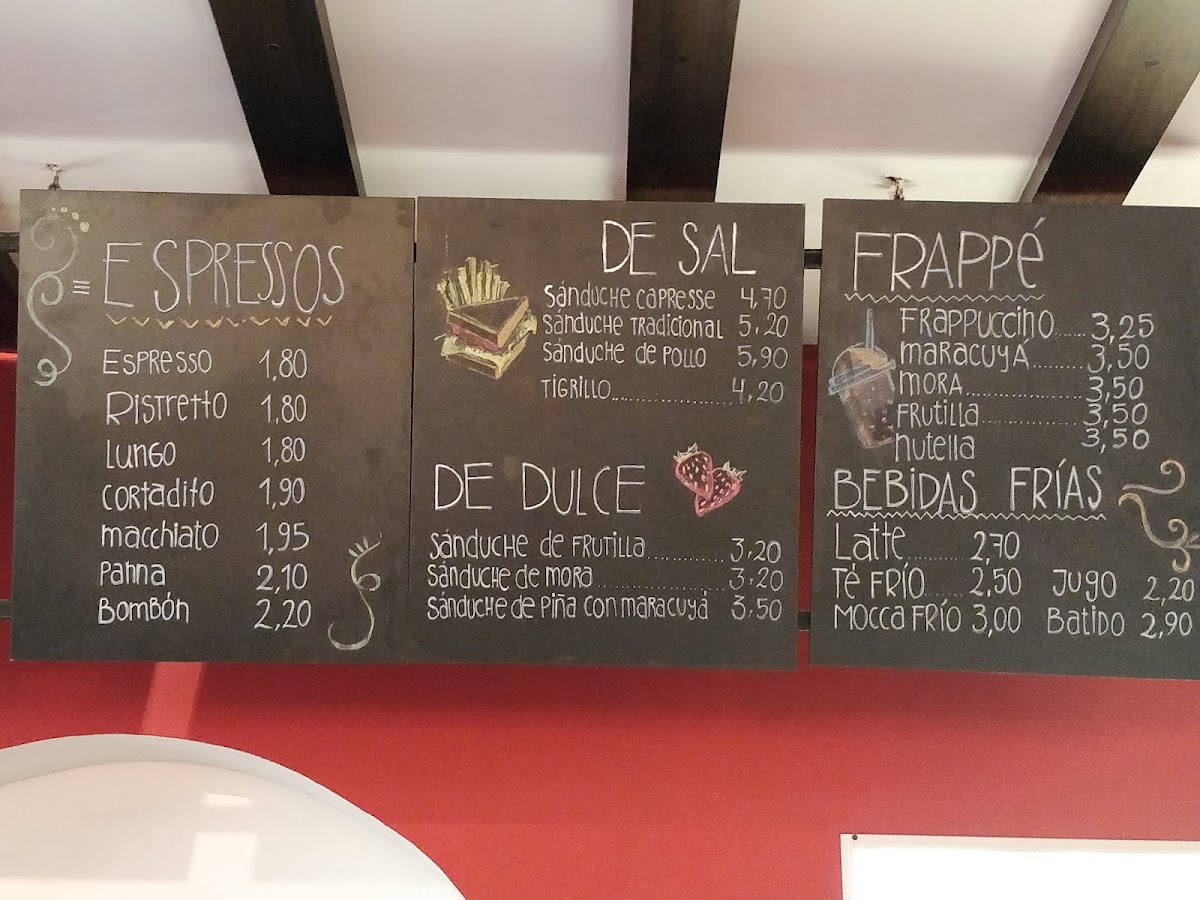 ESPRESSOS
Espresso 1,80
Ristretto 1,80
Lungo 1,80
Cortadito 1,90
macchiato 1,95
Panna 2,10
Bombón 2,20
DE SAL
Sánduche Capresse 4,70
Sánduche Tradicional 5,20
Sánduche de Pollo 5,90
Tigrillo 4,20
DE DULCE
Sánduche de Frutilla 3,20
Sánduche de Mora 3,20
Sánduche de Piña con Maracuyá 3,50
FRAPPé
Frappuccino 3,25
Maracuyá 3,50
Mora 3,50
Frutilla 3,50
Nutella 3,50
BEBIDAS FRÍAS
Latte 2,70
Té Frío 2,50 Jugo 2,20
Mocca Frío 3,00 Batido 2,90